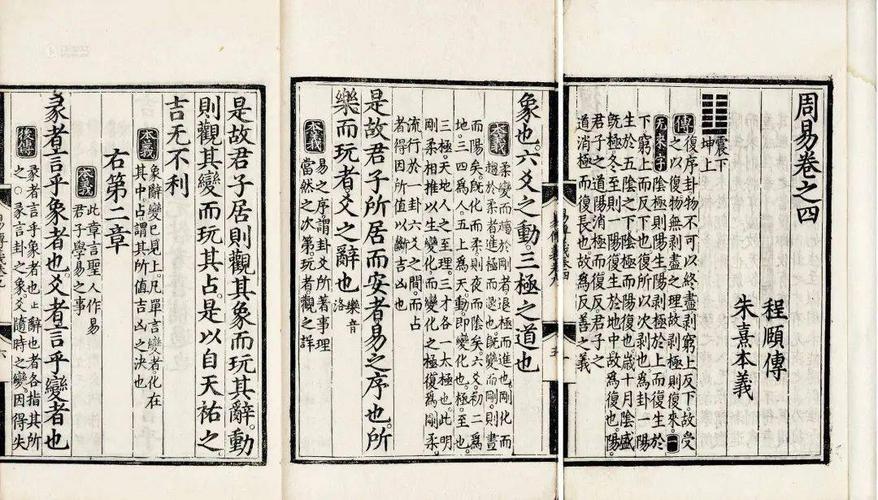 周易卷之四
程頤傳
朱熹本義
震下
坤上
傳 復序卦物不可以終盡剥窮上反下故受
之以復物無剥盡之理故剥極則復來一
无來字 陰極則陽生陽剥極於上而復生於
下窮上而反下也復所以次剥也為卦一陽
生於五陰之下陰極而陽復也歲十月陰盛
既極冬至則一陽復生於地中故為復也陽
君子之道陽消極而復反君子之
道消極而復長也故為反善之義
象也六爻之動三極之道也
本義 柔變而趨於剛者退極而進也剛化而
趨於柔者進極而退也既變而剛則晝
而陽矣既化而柔則夜而陰矣六爻初二為
地三四為人五上為天動即變化也極至也
三極天地人之至理三才各一太極也此明
剛柔相推以生變化而變化之極復為剛柔
流行於一卦六爻之間而占
者得因所值以斷吉凶也
是故君子所居而安者易之序也所
樂而玩者爻之辭也 樂音
洛
本義 易之序謂卦爻所著事理
當然之次第玩者觀之詳
是故君子居則觀其象而玩其辭動
則觀其變而玩其占是以自天祐之
吉无不利
本義 象辭變已見上凡單言變者化在
其中占謂其所值吉凶之決也
右第二章
本義 此章言聖人作易
君子學易之事
彖者言乎象者也爻者言乎變者也
後傳 彖者言乎象者也止辭也者各指其所
之彖言卦之象爻隨時之變因得失